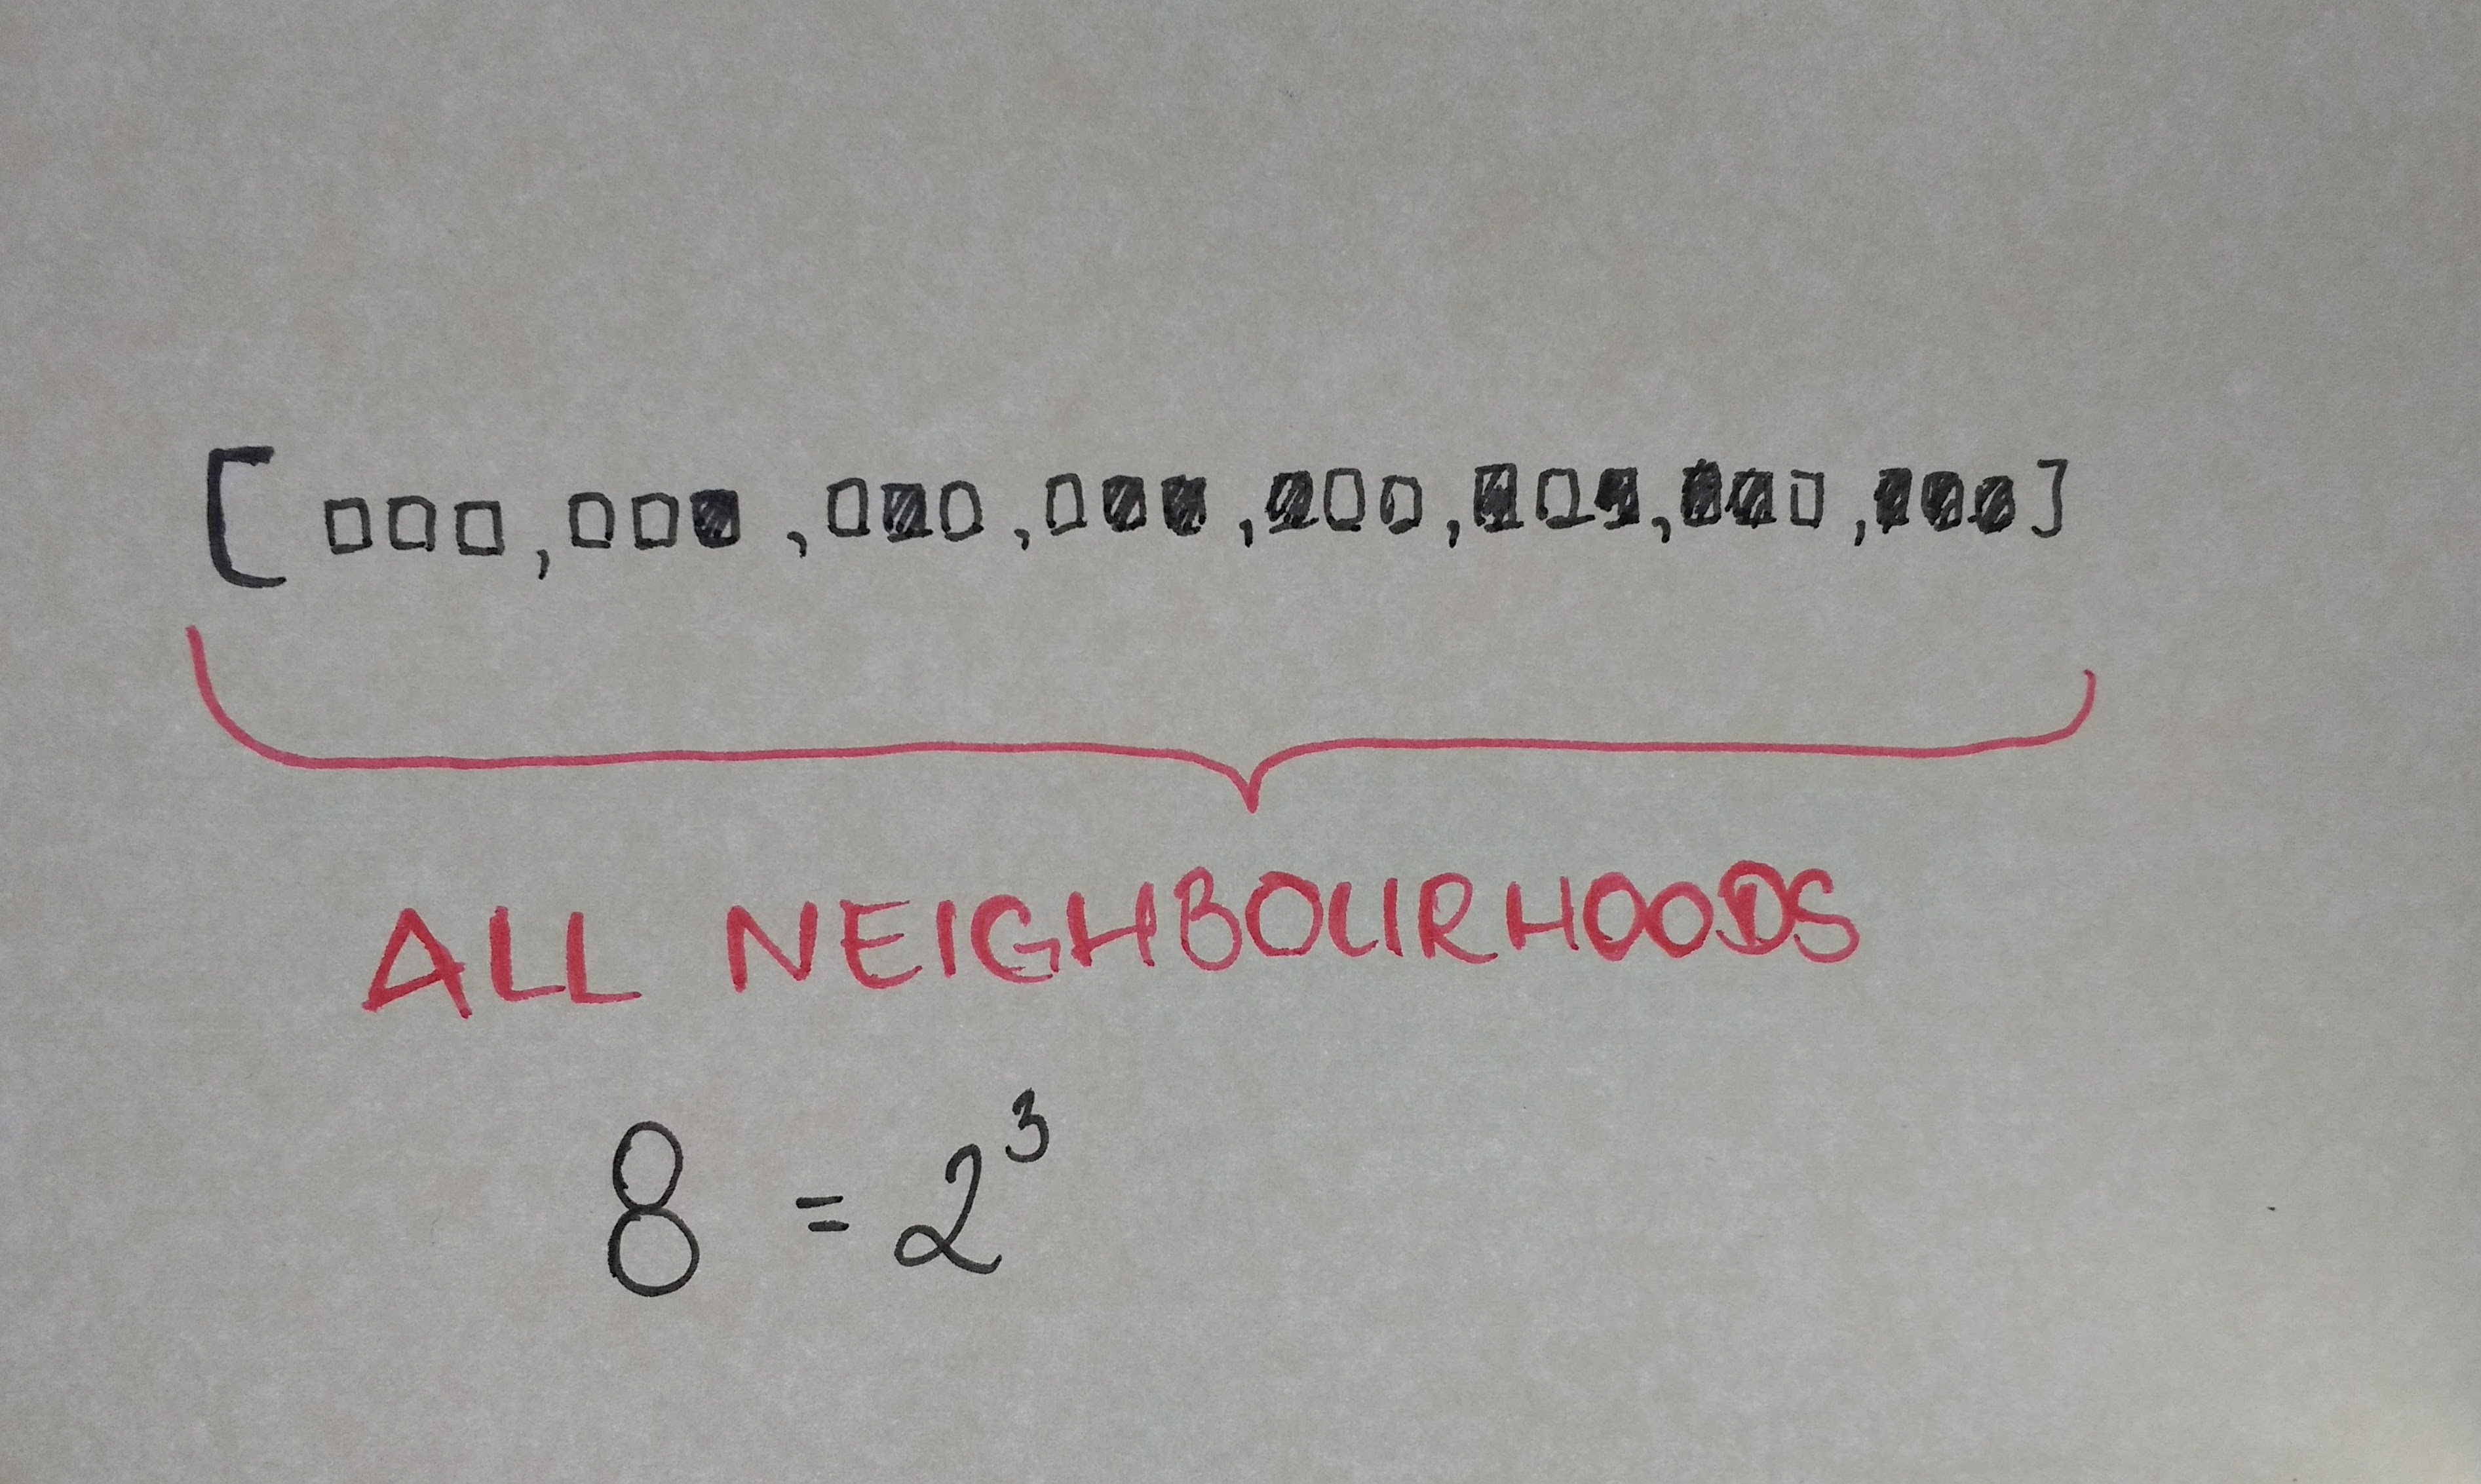 [□□□, □□■, □■□, □■■, ■□□, ■□■, ■■□, ■■■]
ALL NEIGHBOURHOODS
8 = 2³